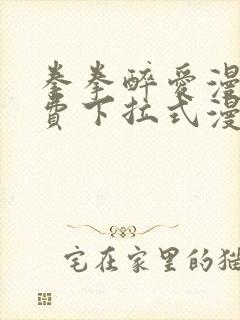 拳拳醉爱漫
费下拉式漫
宅在家里的猫